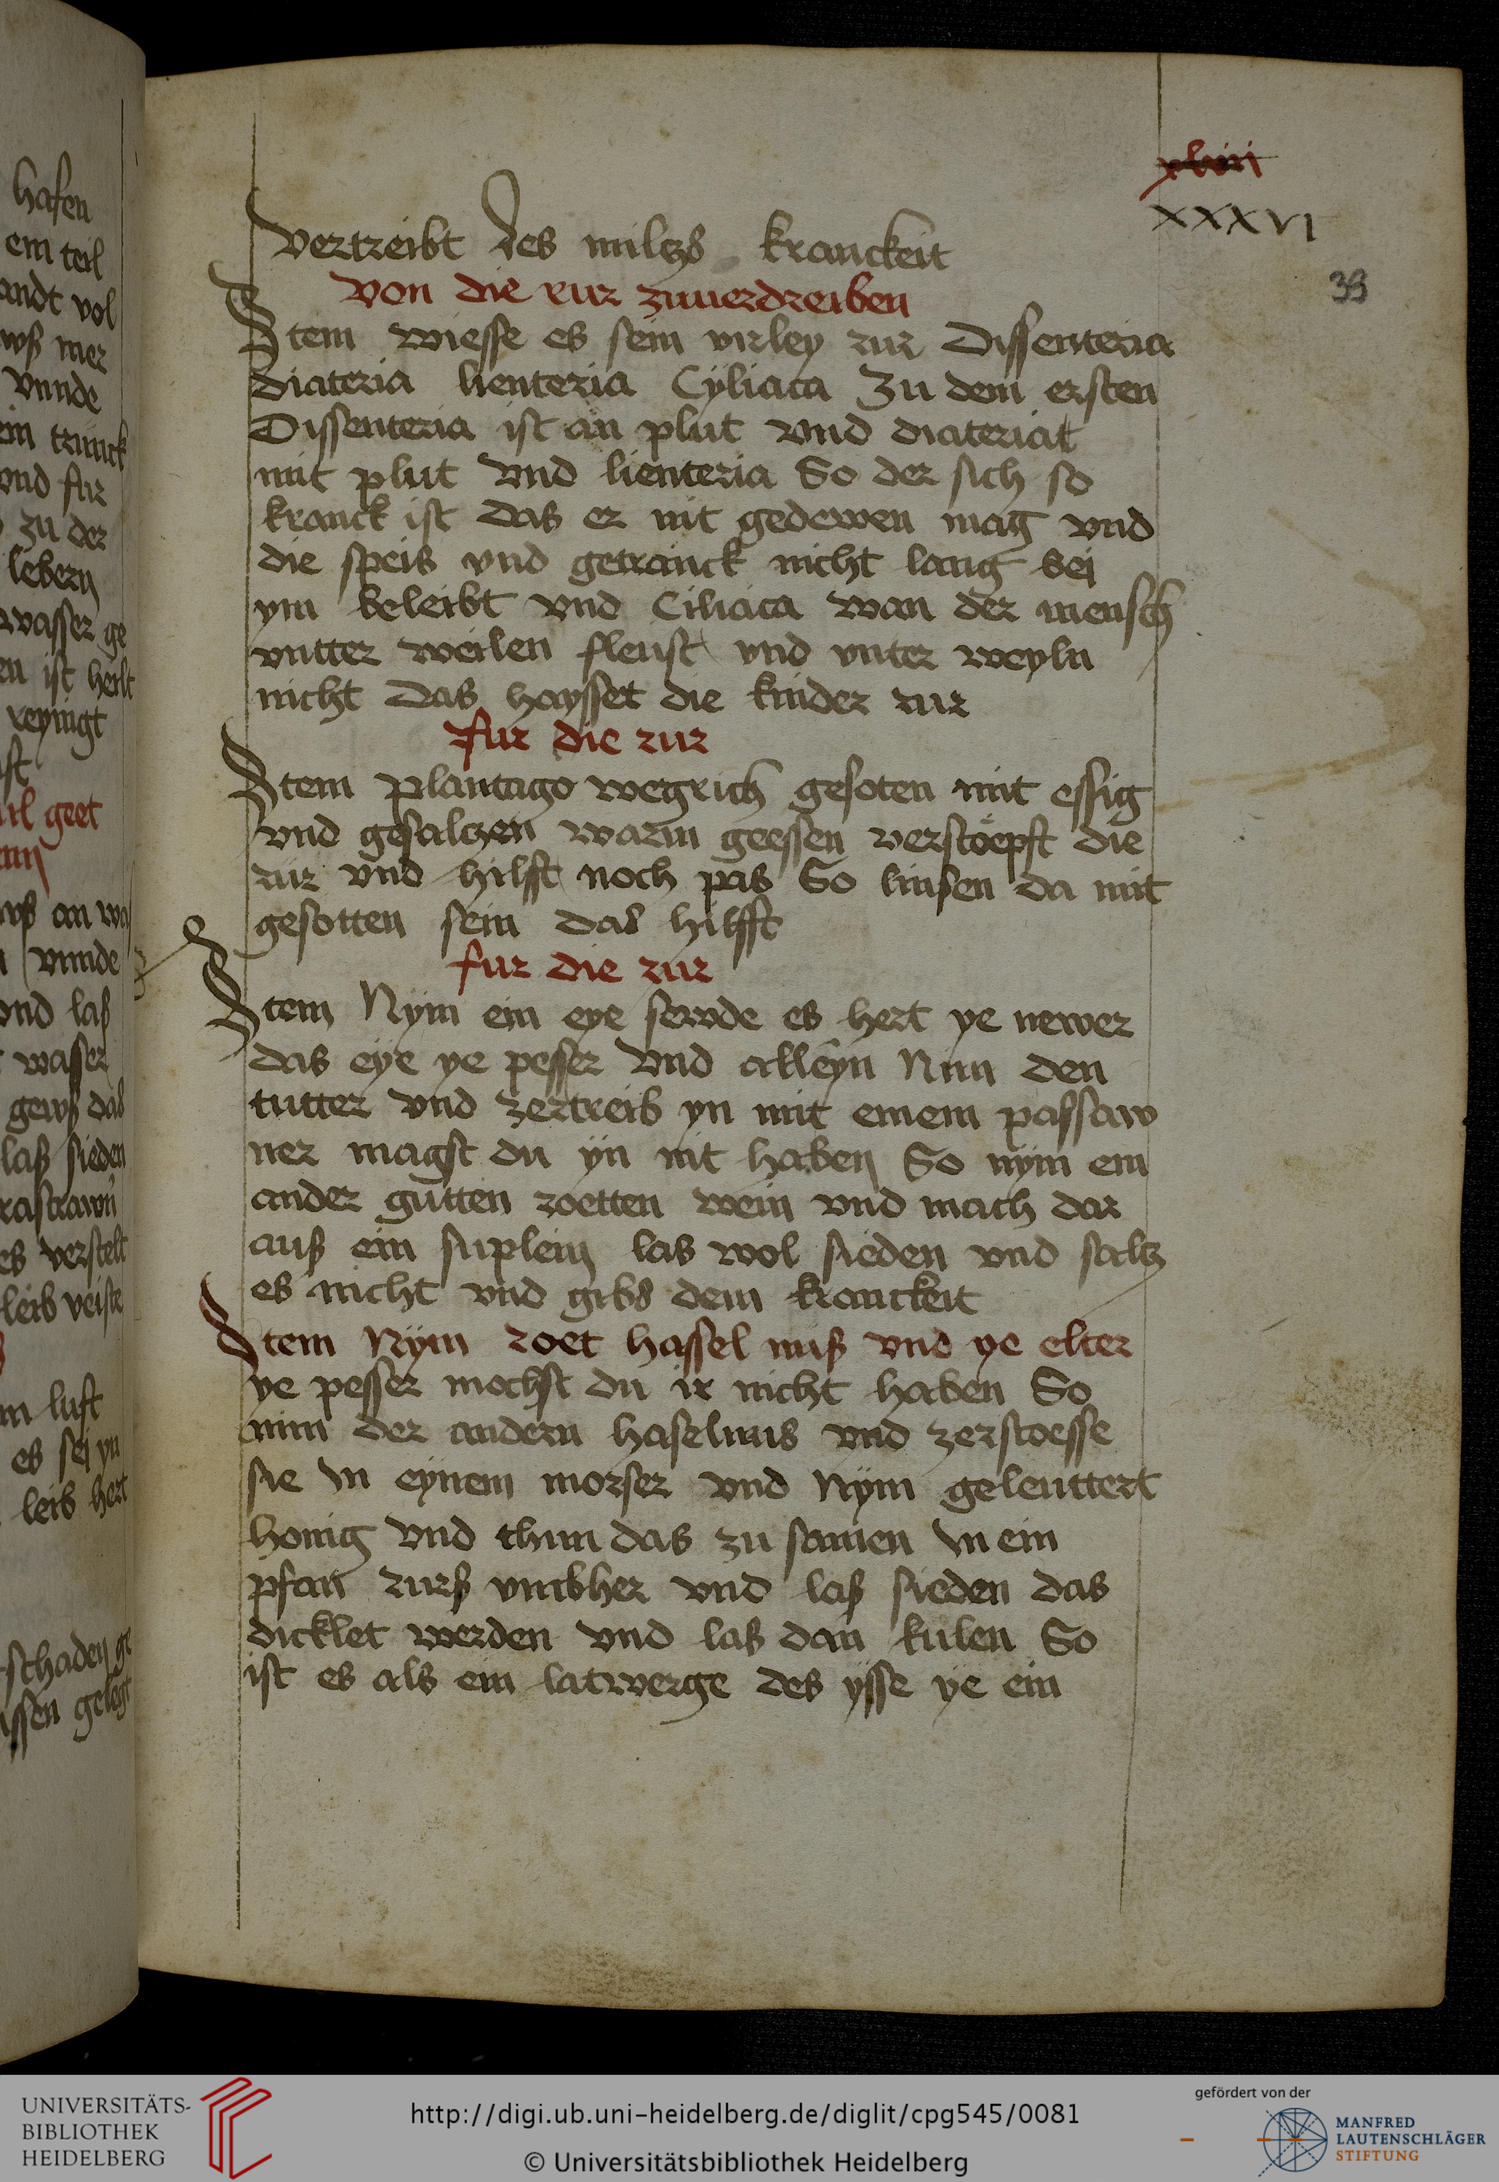 xlviii
XXXVI
39
vertreibt des miltzs kranckeit
von die rur zuuerdreiben
Item wiesse es sein virley rur Dissenteria
diateria lienteria Cyliaca Zu dem ersten
Dissenteria ist an plut vnd diateriat
mit plut vnd lienteria So der sich so
kranck ist das er nit gedewen mag vnd
die speis vnd getranck nicht lang bei
ym beleibt vnd Ciliaca wan der mensch
vntter weilen fleust vnd vnter weyln
nicht das haysset die kinder rur
fur die rur
Item plantago wegrich gesoten mit essig
vnd gesaltzen warm geessen verstoepft die
rur vnd hilfft noch pas So linsen da mit
gesotten sein das hilfft
fur die rur
Item Nym ein eye sewde es hert ye newer
das eye ye pesser vnd alleyn Nim den
tutter vnd zertreib yn mit einem passaw
ner magst du yn nit haben So nym ein
ander gutten roetten wein vnd mach dar
auß ein suplein las wol sieden vnd saltz
es nicht vnd gibs dem kranckeit
Item Nym roet hassel nuß vnd ye elter
ye pesser mochst du ir nicht haben So
nim der andern haselnus vnd zerstoesse
sie in eynem morser vnd Nym geleuttert
honig vnd thun das zu samen in ein
pfan rurß vmbher vnd laß sieden das
dicklet werden vnd las dan kulen So
ist es als ein latwerge des ysse ye ein
hafen
ein teil
andt vol
mer
vnnde
trunck
vnd fur
zu der
lebern
wasser ge
en ist heilt
reynigt
geet
vnnde
vnd laß
wasser
das
laß sieden
es verstelt
leib
luft
es sei yn
leib hert
schaden ge
gelegt
UNIVERSITÄTS-
BIBLIOTHEK
HEIDELBERG
http://digi.ub.uni-heidelberg.de/diglit/cpg545/0081
© Universitätsbibliothek Heidelberg
gefördert von der
MANFRED
LAUTENSCHLÄGER
STIFTUNG